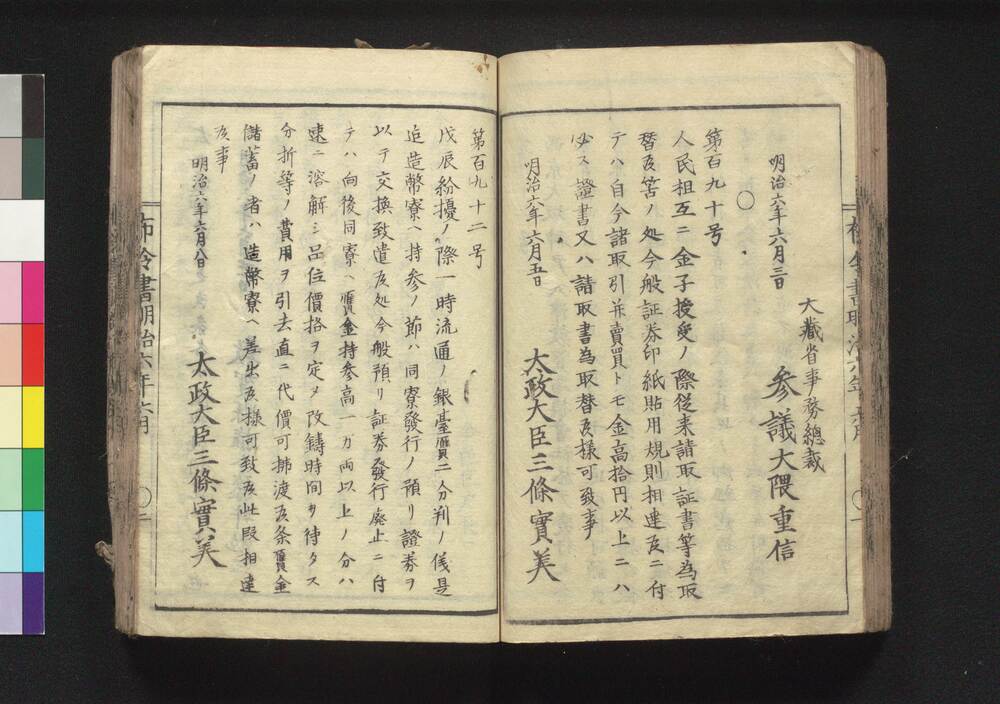 明治六年六月三日
大藏省事務總裁
参議大隈重信
〇
第百九十号
人民相互ニ金子授受ノ際従来請取証書等為取
替及筈ノ処今般証券印紙貼用規則相達及ニ付
テハ自今諸取引并賣買トモ金高拾円以上ニハ
必ス證書又ハ請取書為取替及様可致事
明治六年六月五日
太政大臣三條實美
第百九十二号
戊辰紛擾ノ際一時流通ノ銀臺贋二分判ノ儀是
迄造幣寮ヘ持参ノ節ハ同寮發行ノ預リ證券ヲ
以テ交換致遣及処今般預リ証券發行廃止ニ付
テハ向後同寮ヘ贋金持参高一カ両以上ノ分ハ
速ニ溶解シ品位價格ヲ定メ改鑄時間ヲ待タス
分折等ノ費用ヲ引去直ニ代價可拂渡及条贋金
儲蓄ノ者ハ造幣寮ヘ差出及様可致及此段相達
及事
明治六年六月八日
太政大臣三條實美
布令書明治六年六月
〇